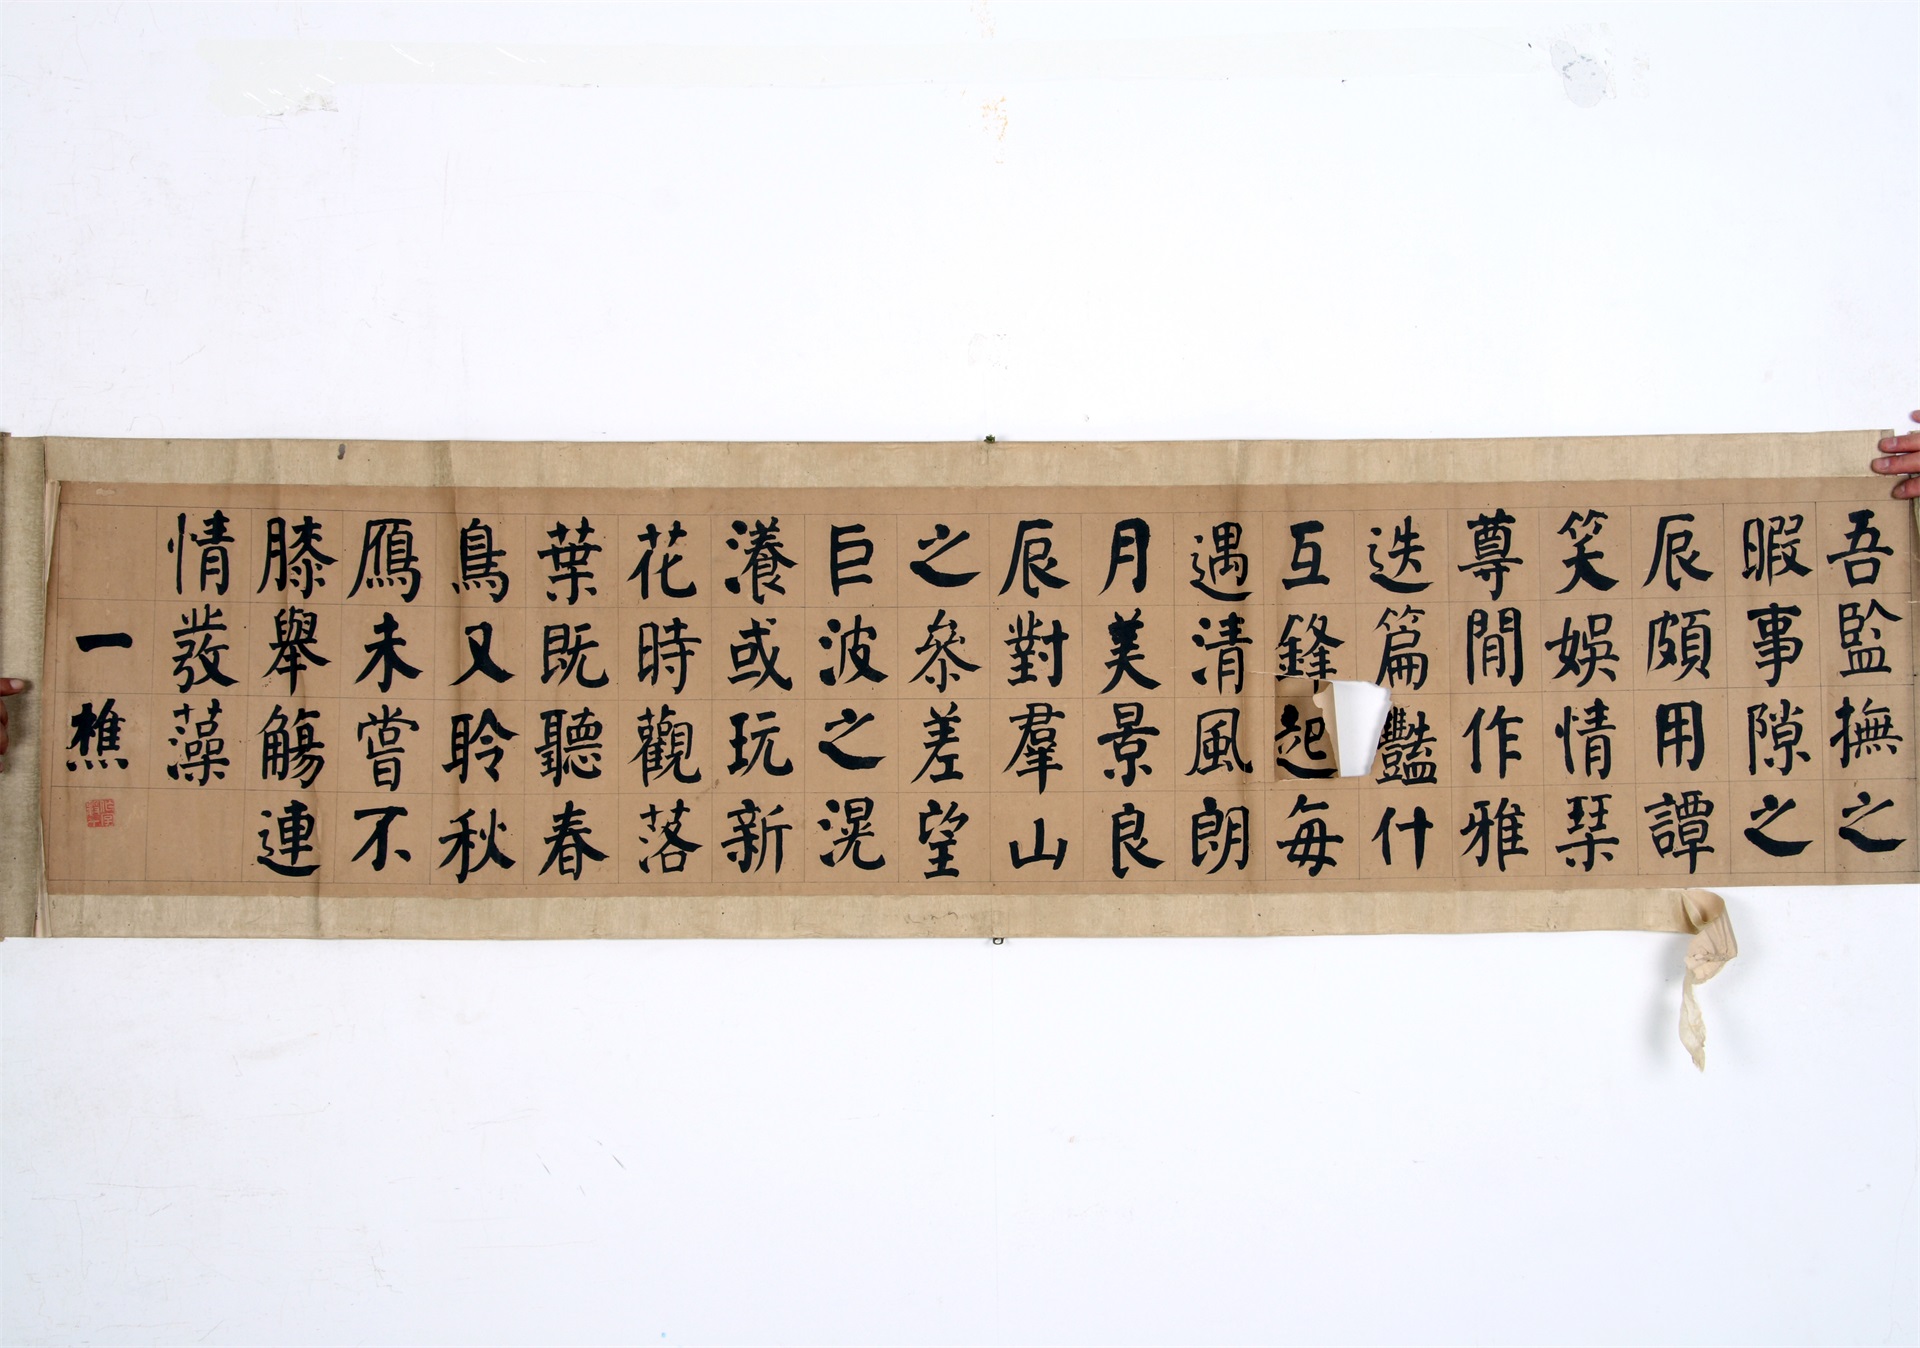 吾監撫之
暇事隙之
辰頗用譚
笑娛情琹
尊閒作雅
迭篇豔什
互鋒起每
遇清風朗
月美景良
辰對羣山
之叅差望
巨波之滉
瀁或玩新
花時觀落
葉既聽春
鳥又聆秋
鴈未嘗不
膝舉觴連
情發藻
一樵